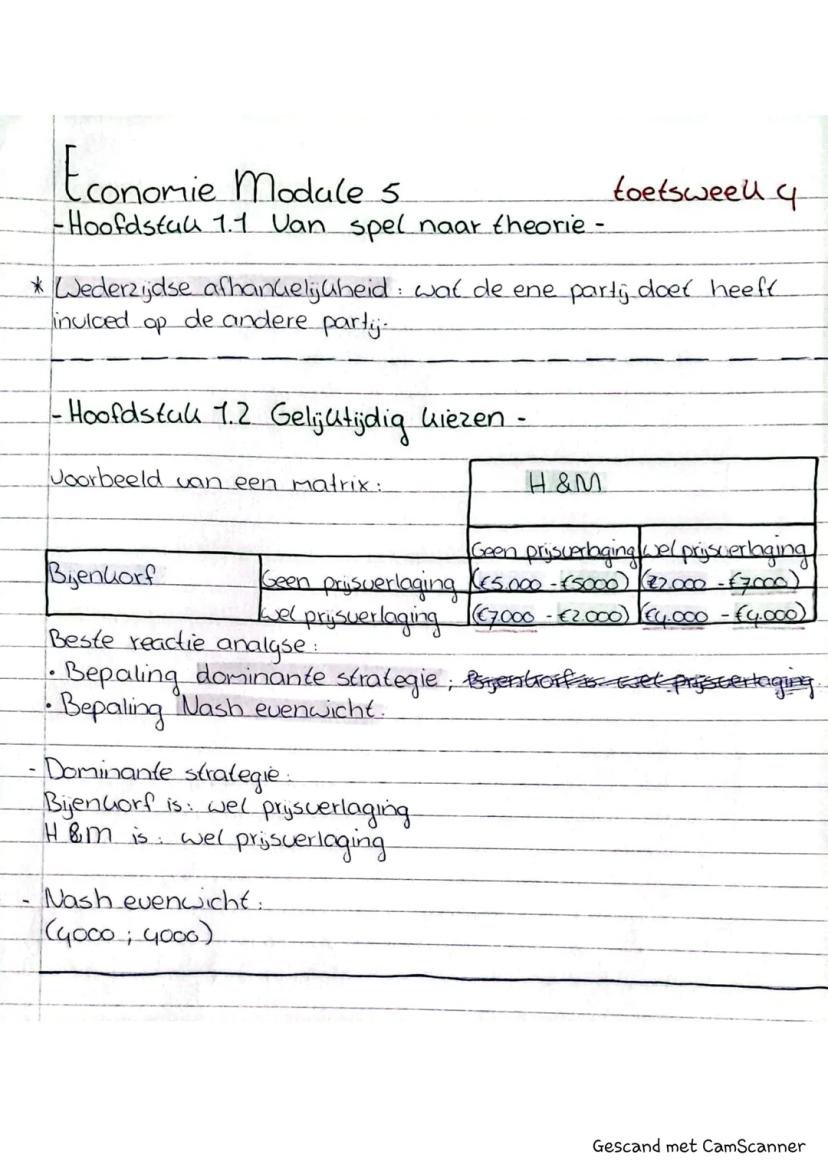 Economie Module 5 toetsweek 4
-Hoofdstuk 1.1 Van spel naar theorie -
* Wederzijdse afhankelijkheid : wat de ene partij doet heeft
invloed op de andere partij.
- Hoofdstuk 1.2 Gelijktijdig kiezen -
Voorbeeld van een matrix : H &M
Geen prijsverlaging wel prijsverlaging
Bijenkorf Geen prijsverlaging (€5.000 - €5000) (€2.000 - €7.000)
wel prijsverlaging (€7.000 - €2.000) (€4.000 - €4.000)
Beste reactie analyse :
• Bepaling dominante strategie ; Bijenkorf is wel prijsverlaging
• Bepaling Nash evenwicht.
- Dominante strategie :
Bijenkorf is : wel prijsverlaging
H &M is : wel prijsverlaging
- Nash evenwicht :
(4000 ; 4000)
Gescand met CamScanner